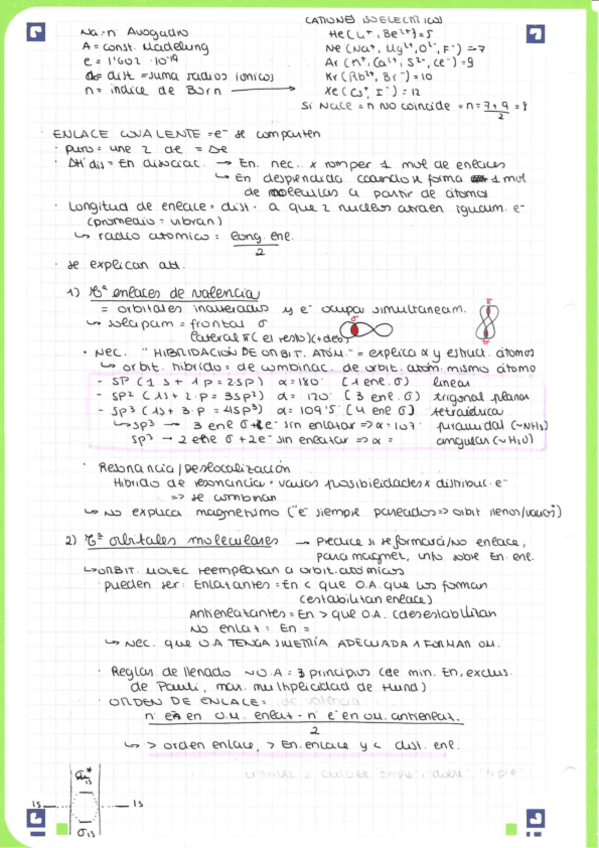 Na = nº Avogadro
A = const. Madelung
e = 1'602 · 10⁻¹⁹
d₀ = dist = suma radios iónicos
n = índice de Born →
CATIONES ISOELECTRICOS
He (Li⁺, Be²⁺) = 5
Ne (Na⁺, Mg²⁺, O²⁻, F⁻) = 7
Ar (K⁺, Ca²⁺, S²⁻, Cl⁻) = 9
Kr (Rb²⁺, Br⁻) = 10
Xe (Cs⁺, I⁻) = 12
Si NaCl = n NO coincide = n = 7+9/2 = 8
· ENLACE COVALENTE = e⁻ se comparten
· puro = une 2 de = Δe
· ΔHdis = En disociac. → En. nec. x romper 1 mol de enlaces
↳ En desprendida cuando se forma 1 mol
de moléculas a partir de átomos
· Longitud de enlace = dist. a que 2 nucleos atraen igualm. e⁻
(promedio = vibran)
↳ radio atomico = long. enl./2
· se explican
1) Tª enlaces de valencia
= orbitales y e⁻ ocupan simultaneam.
↳ solapam = frontal σ
lateral π (el resto)
σ
π
π
· Nec. "HIBRIDACIÓN DE ORBIT. ATÓM." = explica α y estruct. átomos
↳ orbit. híbrido = de combinac. de orbit. atom. mismo átomo
- SP (1 s + 1 p = 2sp) α = 180° (1 enl. σ) lineal
- SP² (1s + 2·p = 3sp²) α = 120° (3 enl. σ) trigonal planar
- SP³ (1s + 3·p = 4sp³) α = 109'5 (4 enl σ) tetraédrica
↳ sp³ → 3 enl σ + 2e⁻ sin enlazar => α = 107° piramidal (~NH₃)
sp³ → 2 enl σ + 2e⁻ sin enlazar => α = angular (~H₂O)
· Resonancia / Deslocalización
Híbrido de resonancia = varias posibilidades x distribuc. e⁻
=> se combinan
↳ No explica magnetismo (e⁻ siempre pareados => orbit llenos/vacíos)
2) Tª orbitales moleculares → Predice si se formará/no enlace,
paramagnet, info sobre En. enl.
↳ ORBIT. MOLEC reemplazan a orbit. atómicos
pueden ser: Enlazantes = En < que O.A. que los forman
(estabilizan enlace)
Antienlazantes = En > que O.A. (desestabilizan
No enlaz = En =
↳ NEC. que O.A TENGA SIMETRÍA ADECUADA
· Reglas de llenado = 3 principios (de min. En, exclus.
de Pauli, max. multiplicidad de Hund)
· ORDEN DE ENLACE =
nº e⁻ en O.M. enlaz - nº e⁻ en OM. antienlaz./2
↳ > orden enlace, > En. enlace y < dist. enl.
σ*1s
1s 1s
σ1s